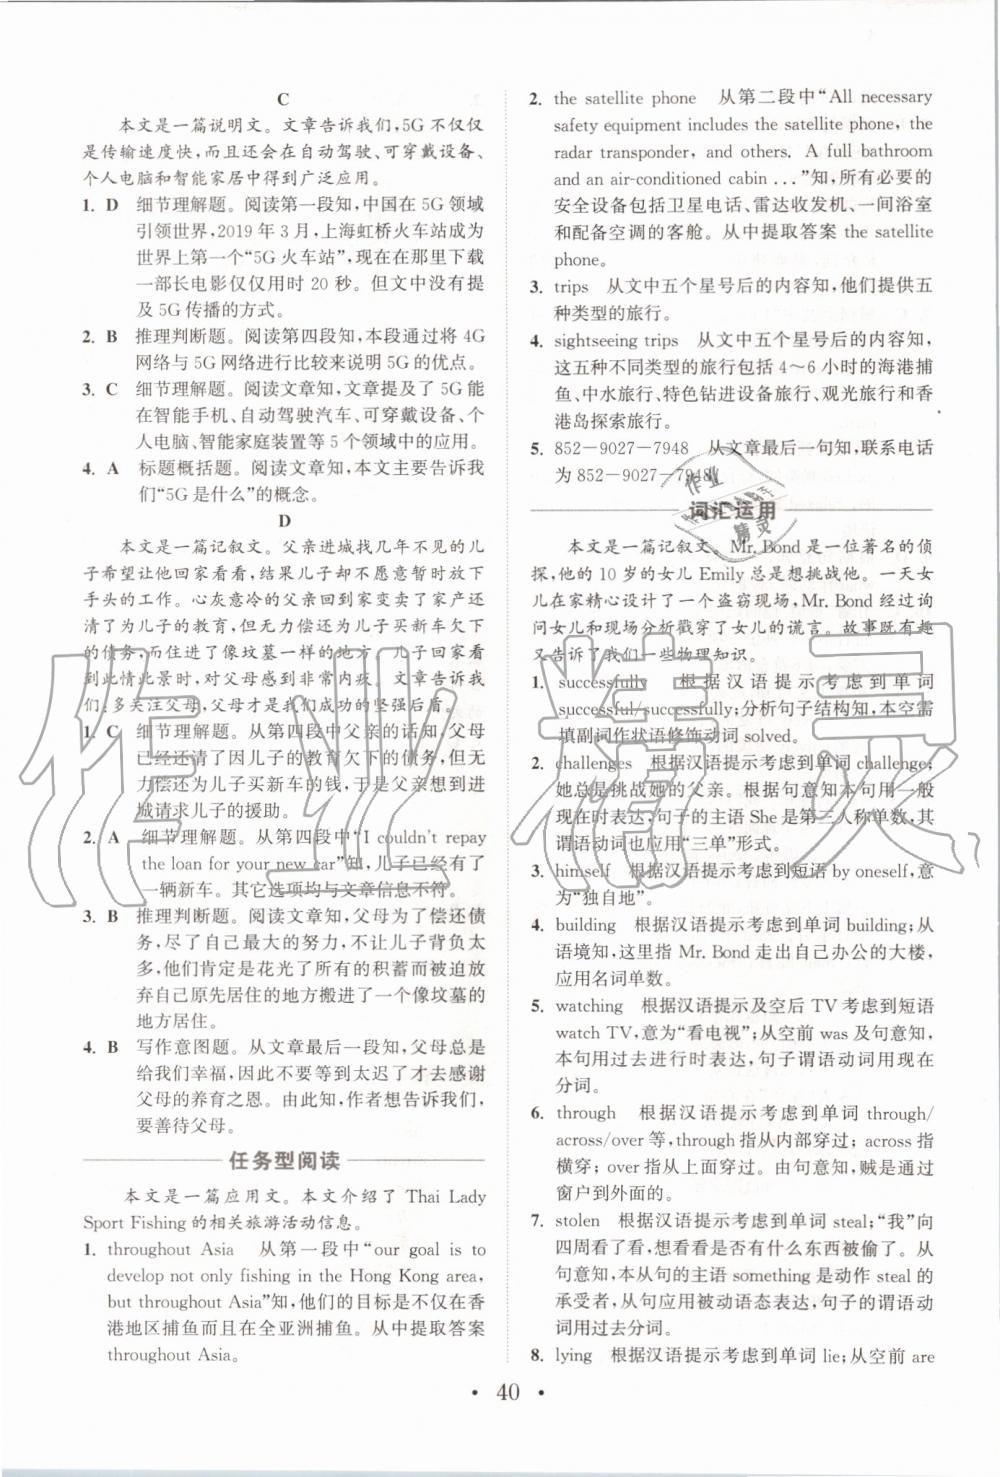 C
本文是一篇说明文。文章告诉我们,5G 不仅仅
是传输速度快,而且还在自动驾驶、可穿戴设备、
个人电脑和智能家居中得到广泛应用。
1. D 细节理解题。阅读第一段知,中国在 5G 领域
引领世界,2019 年 3 月,上海虹桥火车站成为
世界上第一个“5G 火车站”,现在在那里下载
一部长电影仅仅用时 20 秒。但文中没有提
及 5G 传播的方式。
2. B 推理判断题。阅读第四段知,本段通过将 4G
网络与 5G 网络进行比较来说明 5G 的优点。
3. C 细节理解题。阅读文章知,文章提及了 5G 能
在智能手机、自动驾驶汽车、可穿戴设备、个
人电脑、智能家庭装置等 5 个领域中的应用。
4. A 标题概括题。阅读文章知,本文主要告诉我
们“5G 是什么”的概念。
D
本文是一篇记叙文。父亲进城找几年不见的儿
子希望让他回家看看,结果儿子却不愿意暂时放下
手头的工作。心灰意冷的父亲回到家变卖了家产还
清了为儿子的教育,但无力偿还为儿子买新车欠下
的债务,而住进了像坟墓一样的地方。儿子看到此
情此景时,对父母感到非常内疚。文章告诉我
们:多关注父母,父母才是我们成功的坚强后盾。
1. C 细节理解题。从第四段中父亲的话知,父母
已经还清了因儿子的教育欠下的债务,但无
力偿还为儿子买新车的钱,于是父亲想到进
城请求儿子的援助。
2. A 细节理解题。从第四段中“I couldn't repay
the loan for your new car”知,儿子已经有了
一辆新车。其它选项均与文章信息不符。
3. B 推理判断题。阅读文章知,父母为了偿还债
务,尽了自己最大的努力,不让儿子背负太
多,他们肯定是花光了所有的积蓄而被迫放
弃自己原先居住的地方搬进了一个像坟墓的
地方居住。
4. B 写作意图题。从文章最后一段知,父母总是
给我们幸福,因此不要等到太迟了才去感谢
父母的养育之恩。由此知,作者想告诉我们,
要善待父母。
任务型阅读
本文是一篇应用文。本文介绍了 Thai Lady
Sport Fishing 的相关旅游活动信息。
1. throughout Asia 从第一段中“our goal is to
develop not only fishing in the Hong Kong area,
but throughout Asia”知,他们的目标是不仅在香
港地区捕鱼而且在全亚洲捕鱼。从中提取答案
throughout Asia。
2. the satellite phone 从第二段中“All necessary
safety equipment includes the satellite phone, the
radar transponder, and others. A full bathroom
and an air-conditioned cabin ...”知,所有必要的
安全设备包括卫星电话、雷达收发机、一间浴室
和配备空调的客舱。从中提取答案 the satellite
phone。
3. trips 从文中五个星号后的内容知,他们提供五
种类型的旅行。
4. sightseeing trips 从文中五个星号后的内容知,
这五种不同类型的旅行包括 4～6 小时的海港捕
鱼、中水旅行、特色钻进设备旅行、观光旅行和香
港岛探索旅行。
5. 852-9027-7948 从文章最后一句知,联系电话
为 852-9027-7948。
词汇运用
本文是一篇记叙文。Mr. Bond 是一位著名的侦
探,他的 10 岁的女儿 Emily 总是想挑战他。一天女
儿在家精心设计了一个盗窃现场,Mr. Bond 经过询
问女儿和现场分析戳穿了女儿的谎言。故事既有趣
又告诉了我们一些物理知识。
1. successfully 根据汉语提示考虑到单词
successful/successfully;分析句子结构知,本空需
填副词作状语修饰动词 solved。
2. challenges 根据汉语提示考虑到单词 challenge;
她总是挑战她的父亲。根据句意知本句用一般
现在时表达,句子的主语 She 是第三人称单数,其
谓语动词也应用“三单”形式。
3. himself 根据汉语提示考虑到短语 by oneself,意
为“独自地”。
4. building 根据汉语提示考虑到单词 building;从
语境知,这里指 Mr. Bond 走出自己办公的大楼,
应用名词单数。
5. watching 根据汉语提示及空后 TV 考虑到短语
watch TV,意为“看电视”;从空前 was 及句意知,
本句用过去进行时表达,句子谓语动词用现在
分词。
6. through 根据汉语提示考虑到单词 through/
across/over 等,through 指从内部穿过;across 指
横穿;over 指从上面穿过。由句意知,贼是通过
窗户到外面的。
7. stolen 根据汉语提示考虑到单词 steal;“我”向
四周看了看,想看看是否有什么东西被偷了。从
句意知,本从句的主语 something 是动作 steal 的
承受者,从句应用被动语态表达,句子的谓语动
词用过去分词。
8. lying 根据汉语提示考虑到单词 lie;从空前 are
· 40 ·
作业精灵